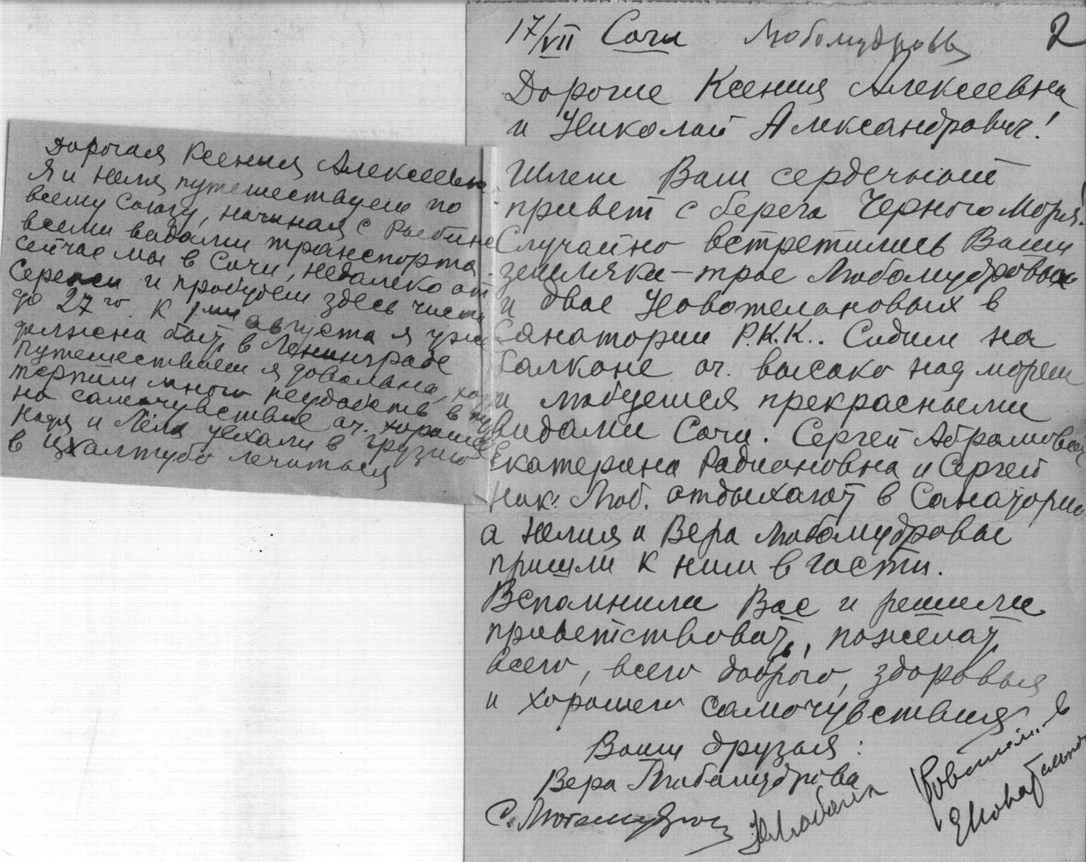 Дорогая Ксения Алексеевн
Я и Неля путешествуем по
всему Союзу, начиная с Рыбинс
всеми видами транспорта.
сейчас мы в Сочи, недалеко от
Сережи и пробудем здесь числа
до 27го. К 1му августа я уже
должна быть в Ленинграде
путешествием я довольна, хотя
терпим много неудобств в
но самочувствие оч. хорошее
Надя и Леля уехали в Грузию
в Цхалтубо лечиться
17/VII Сочи Любомудровы 2
Дорогие Ксения Алексеевна
и Николай Александрович!
Шлем Вам сердечный
привет с берега Черного Моря!
Случайно встретились Ваши
земляки - трое Любомудровых
и двое Новотельновых в
Санатории Р.К.К.. Сидим на
балконе оч. высоко над морем
и любуемся прекрасными
видами Сочи. Сергей Абрамович
Екатерина Радионовна и Сергей
Ник. Люб. отдыхают в Санатории
а Нелия и Вера Любомудровы
пришли к ним в гости.
Вспомнили Вас и решили
приветствовать, пожелать
всего, всего доброго, здоровья
и хорошего самочувствия
Ваши друзья:
Вера Любомудрова
С. Любомудров